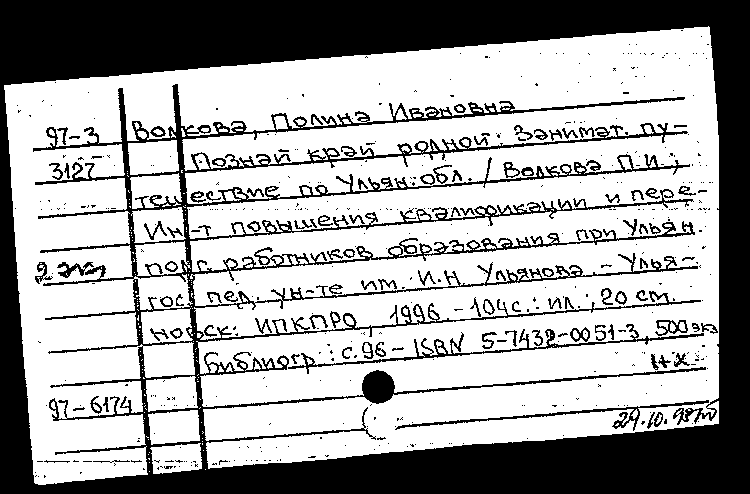 97-3 Волкова, Полина Ивановна
3127 Познай край родной: Занимат. пу-
тешествие по Ульян. обл. / Волкова П.И.;
Ин-т повышения квалификации и пере-
2 экз подг. работников образования при Ульян.
гос. пед. ун-те им. И.Н. Ульянова. - Улья-
новск: ИПКПРО, 1996. - 104с.: ил.; 20 см.
Библиогр.: с.96 - ISBN 5-7432-0051-3, 500 экз
97-6174
29.10.98